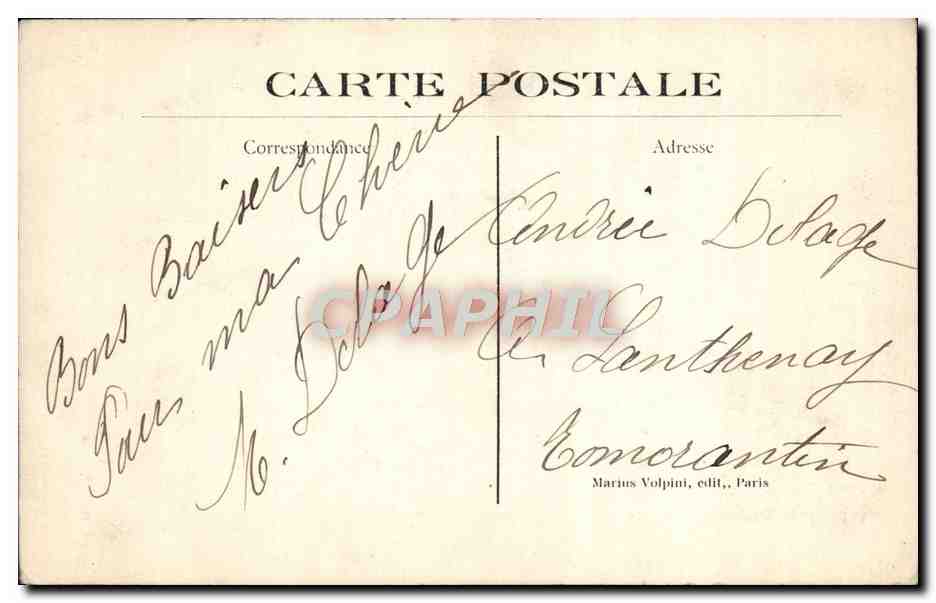 CARTE POSTALE
Correspondance
Bons Baisers
Pour ma Chérie
M. Delage
Adresse
Andrée Delage
A Lanthenay
Romorantin
Marius Volpini, edit., Paris
CPAPHIL